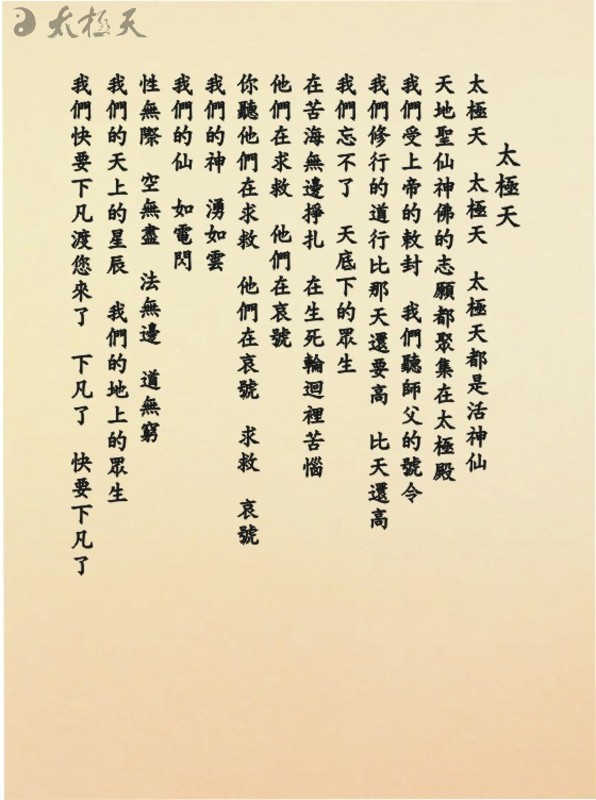 太極天
太極天
太極天　太極天　太極天都是活神仙
天地聖仙神佛的志願都聚集在太極殿
我們受上帝的敕封　我們聽師父的號令
我們修行的道行比那天還要高　比天還高
我們忘不了　天底下的眾生
在苦海無邊掙扎　在生死輪迴裡苦惱
他們在求救　他們在哀號
你聽他們在求救　他們在哀號　求救　哀號
我們的神　湧如雲
我們的仙　如電閃
性無際　空無盡　法無邊　道無窮
我們的天上的星辰　我們的地上的眾生
我們快要下凡渡您來了　下凡了　快要下凡了